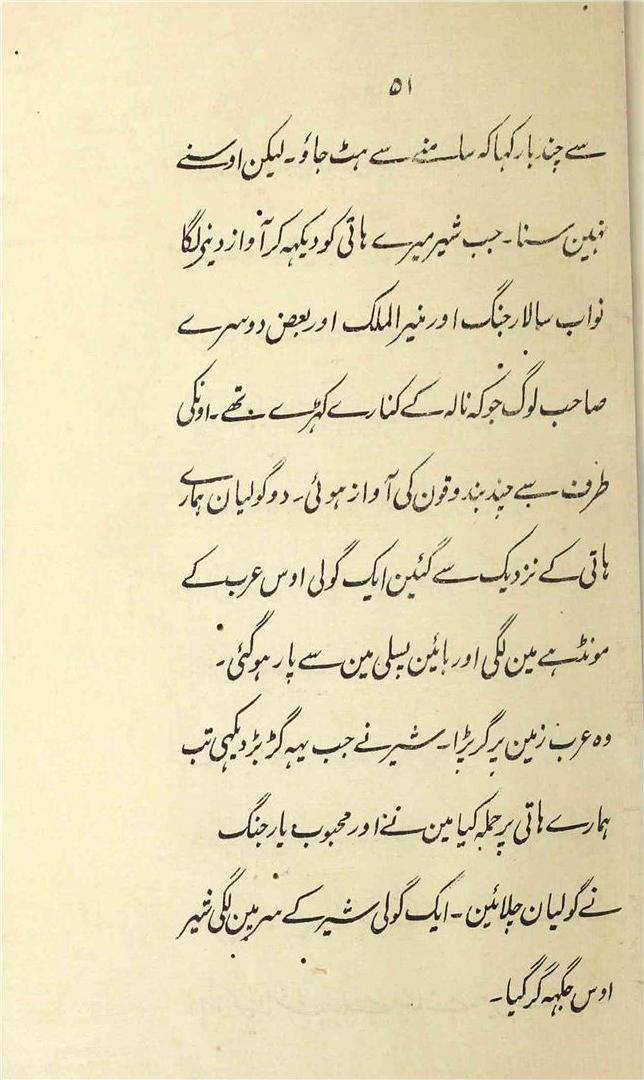 ۵۱
سے چند بار کہا کہ سامنے سے ہٹ جاؤ۔ لیکن اوسنے
نہین سنا۔ جب شیر میرے ہاتی کو دیکہہ کر آواز دینی لگا
نواب سالار جنگ اور منیر الملک اور بعض دوسرے
صاحب لوگ جو کہ نالہ کے کنارے کہڑے تھے۔ اونکی
طرف سے چند بندوقون کی آواز ہوئی۔ دو گولیان ہمارے
ہاتی کے نزدیک سے گئین ایک گولی اوس عرب کے
مونڈہے مین لگی اور بائین پسلی مین سے پار ہو گئی۔
وہ عرب زمین پر گر پڑا۔ شیر نے جب یہہ گڑ بڑ دیکہی تب
ہمارے ہاتی پر حملہ کیا مین نے اور محبوب یار جنگ
نے گولیان چلائین۔ ایک گولی شیر کے سر مین لگی شیر
اوس جگہہ گر گیا۔